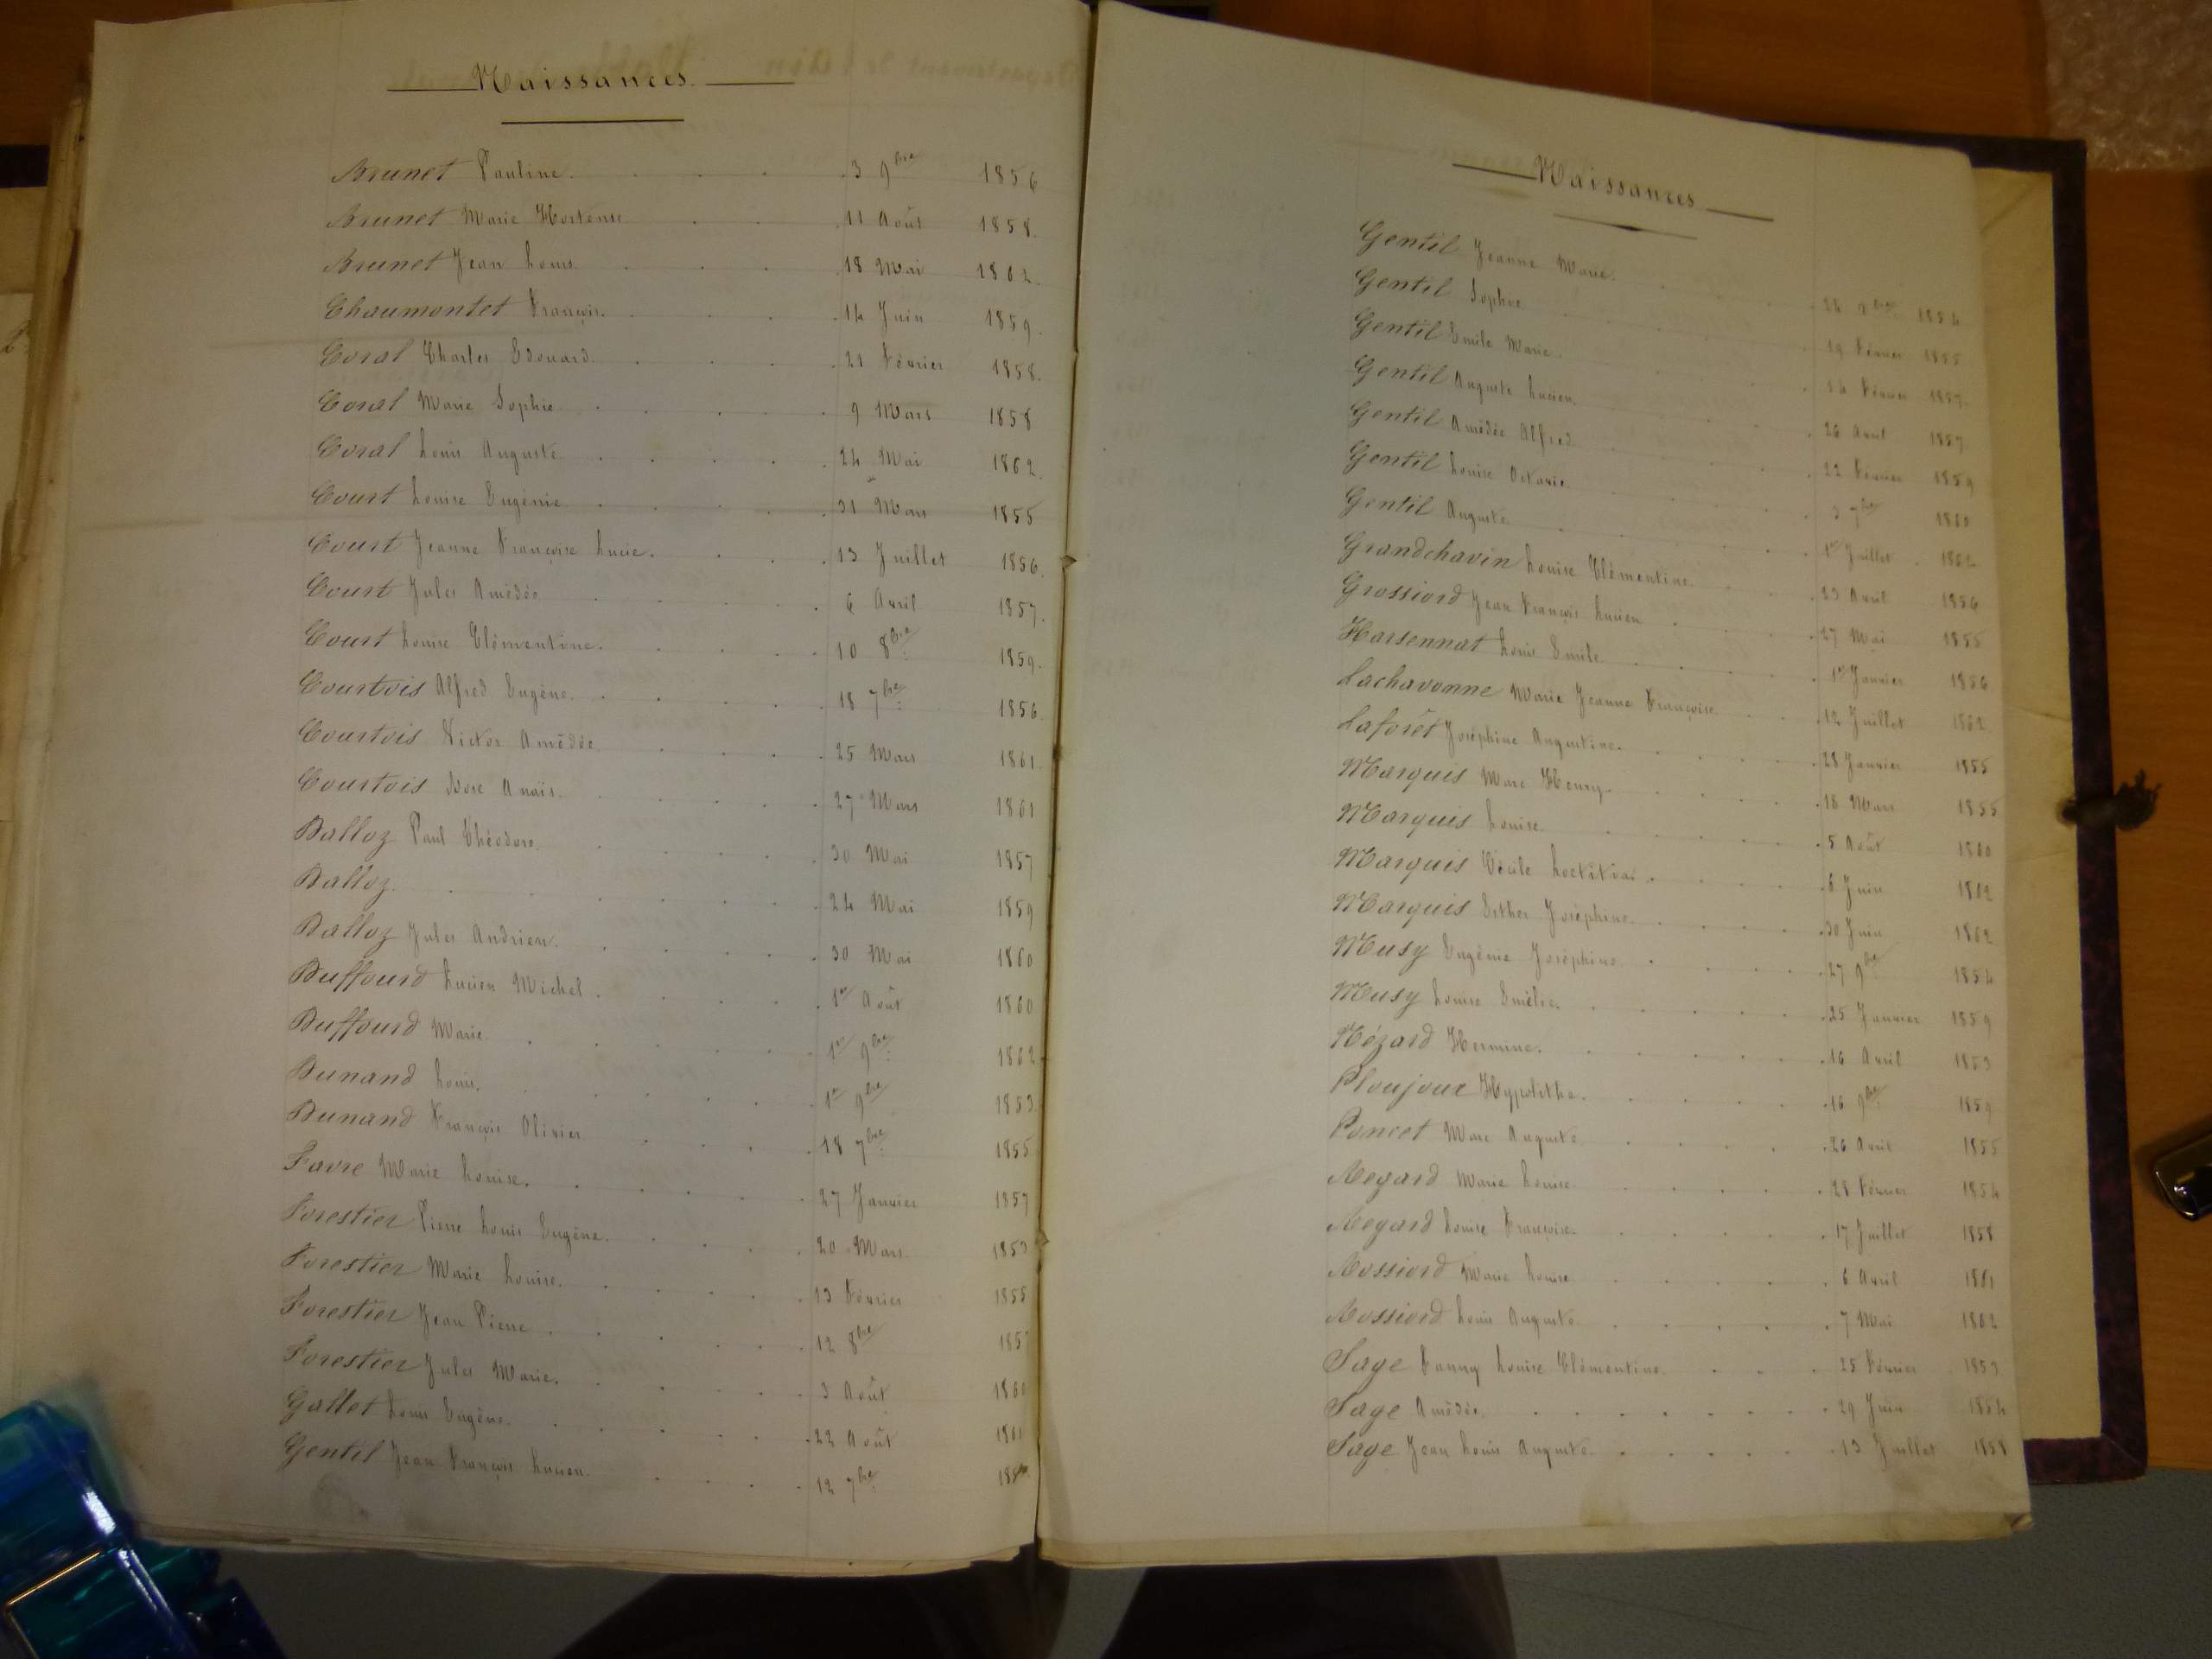 Naissances.
Brunet Pauline. 3 9bre 1856
Brunet Marie Hortense 11 Août 1858.
Brunet Jean Louis 18 Mai 1862.
Chaumontet François. 14 Juin 1859.
Coral Charles Edouard 21 Février 1858.
Coral Marie Sophie 9 Mars 1858
Coral Louis Auguste 24 Mai 1862.
Court Louise Eugénie 31 Mars 1855
Court Jeanne Françoise Lucie. 13 Juillet 1856.
Court Jules Amédée 6 Avril 1857.
Court Louise Clémentine. 10 8bre 1859.
Courtois Alfred Eugène. 18 7bre 1856.
Courtois Victor Amédée 25 Mars 1861.
Courtois Anaïs. 27 Mars 1861
Dalloz Paul Théodore. 30 Mai 1857
Dalloz. 24 Mai 1859
Dalloz Jules Andrien. 30 Mai 1860
Duffourd Lucien Michel. 1er Août 1860
Duffourd Marie 1er 9bre 1862
Dunand Louis. 1er 9bre 1853.
Dunand François Olivier 18 7bre 1855
Favre Marie Louise. 27 Janvier 1857
Forestier Pierre Louis Eugène. 20 Mars 1853
Forestier Marie Louise. 13 Février 1855
Forestier Jean Pierre 12 8bre
Forestier Jules Marie. 3 Août 1860
Gallet Louis Eugène 22 Août 1861
Gentil Jean François Lucien. 12 7bre
Naissances
Gentil Jeanne Marie. 1854
Gentil Sophie 19 Février 1855
Gentil Emile Marie. 14 Février 1857
Gentil Auguste Lucien. 26 Avril 1857.
Gentil Amédée Alfred 12 Février 1859
Gentil Louise Octavie 3 7bre 1860
Gentil Auguste 1er Juillet 1862
Grandchavin Louise Clémentine 23 Avril 1856
Grossiord Jean François Lucien 27 Mai 1855
Harsennat Louis Emile 1er Janvier 1856
Lachavonne Marie Jeanne Françoise 12 Juillet 1862
Laforêt Joséphine Augustine. 28 Janvier 1855
Marquis Marc Henry. 18 Mars 1855
Marquis Louise 5 Août 1860
Marquis Cécile Loetitia. 6 Juin 1862
Marquis Esther Joséphine. 30 Juin 1862
Musy Eugénie Joséphine. 27 9bre 1854
Musy Louise Emélie. 25 Janvier 1859
Nézard Hermine. 16 Avril 1853
Ploujoux Hyppolithe. 16 9bre 1859
Poncet Marc Auguste 26 Avril 1855
Regard Marie Louise 28 Février 1854
Regard Louise Françoise. 17 Juillet 1858
Rossiord Marie Louise 6 Avril 1861
Rossiord Louis Auguste. 7 Mai 1862
Sage Fanny Louise Clémentine 25 Février 1853
Sage Amédée. 29 Juin 1854
Sage Jean Louis Auguste. 13 Juillet 1858